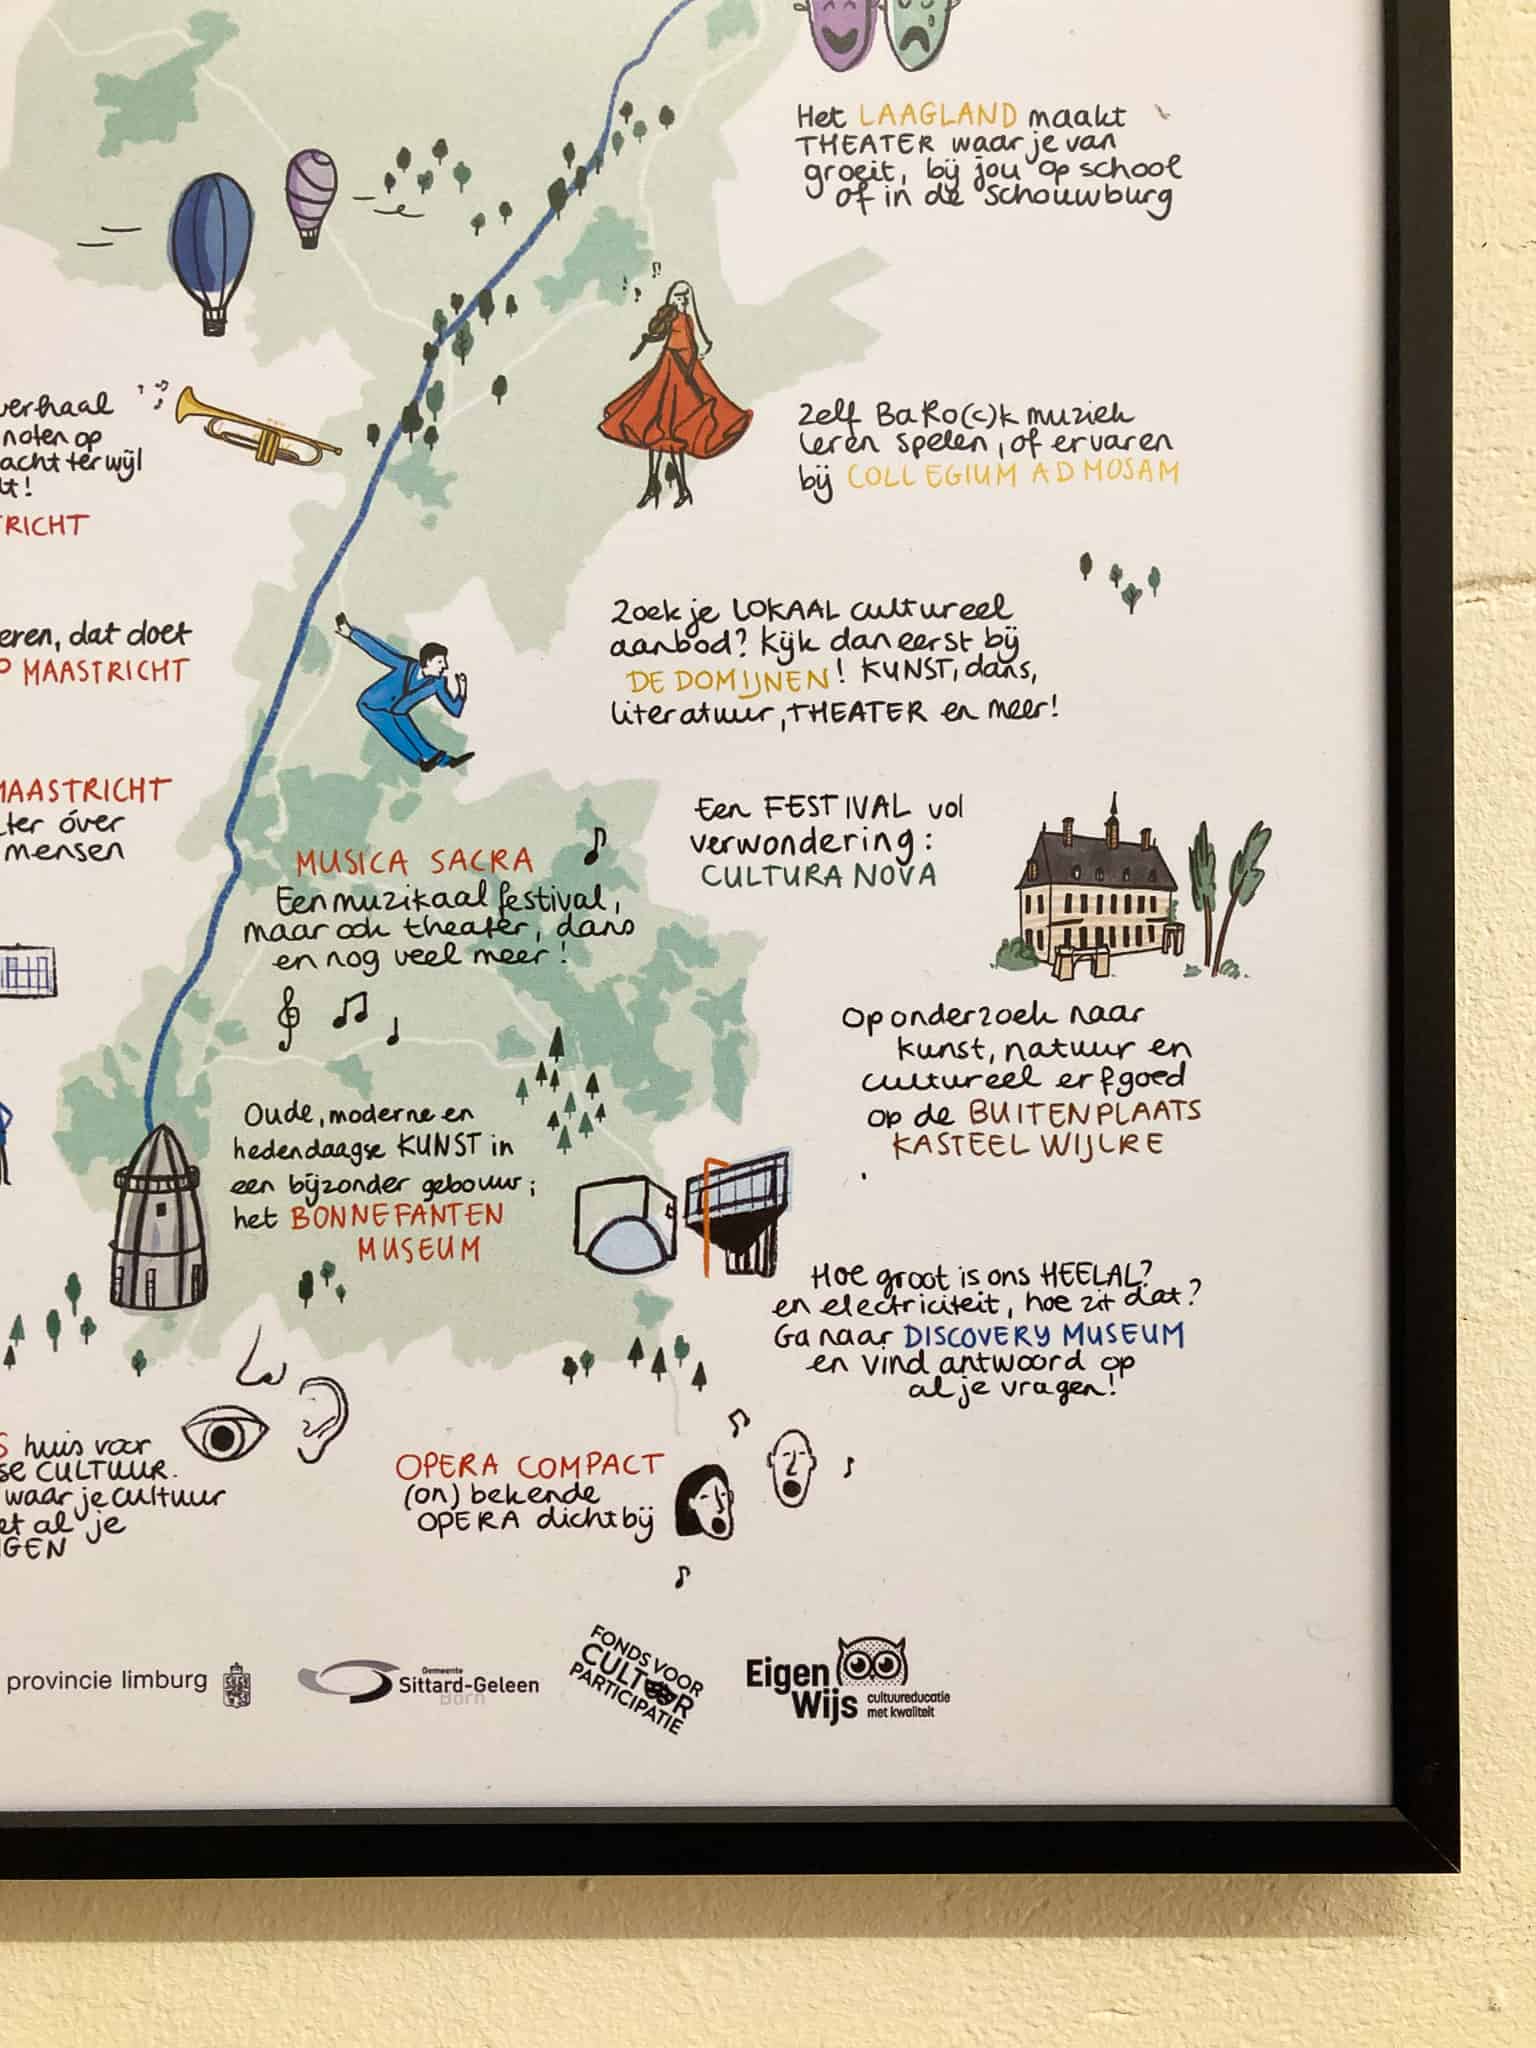 Het LAAGLAND maakt
THEATER waar je van
groeit, bij jou op school
of in de schouwburg
verhaal
noten op
acht terwijl
t!
TRICHT
Zelf BaRo(c)k muziek
leren spelen, of ervaren
bij COLLEGIUM AD MOSAM
eren, dat doet
MAASTRICHT
Zoek je LOKAAL cultureel
aanbod? Kijk dan eerst bij
DE DOMIJNEN! KUNST, dans,
literatuur, THEATER en meer!
MAASTRICHT
ter óver
mensen
Een FESTIVAL vol
verwondering:
CULTURA NOVA
MUSICA SACRA
Een muzikaal festival,
maar ook theater, dans
en nog veel meer!
Op onderzoek naar
kunst, natuur en
cultureel erfgoed
op de BUITENPLAATS
KASTEEL WIJLRE
Oude, moderne en
hedendaagse KUNST in
een bijzonder gebouw;
het BONNEFANTEN
MUSEUM
Hoe groot is ons HEELAL?
en electriciteit, hoe zit dat?
Ga naar DISCOVERY MUSEUM
en vind antwoord op
al je vragen!
S huis voor
se CULTUUR.
waar je cultuur
et al je
IGEN
OPERA COMPACT
(on)bekende
OPERA dichtbij
provincie limburg
Gemeente
Sittard-Geleen
Born
FONDS VOOR
CULTUUR
PARTICIPATIE
Eigen
Wijs
cultuureducatie
met kwaliteit